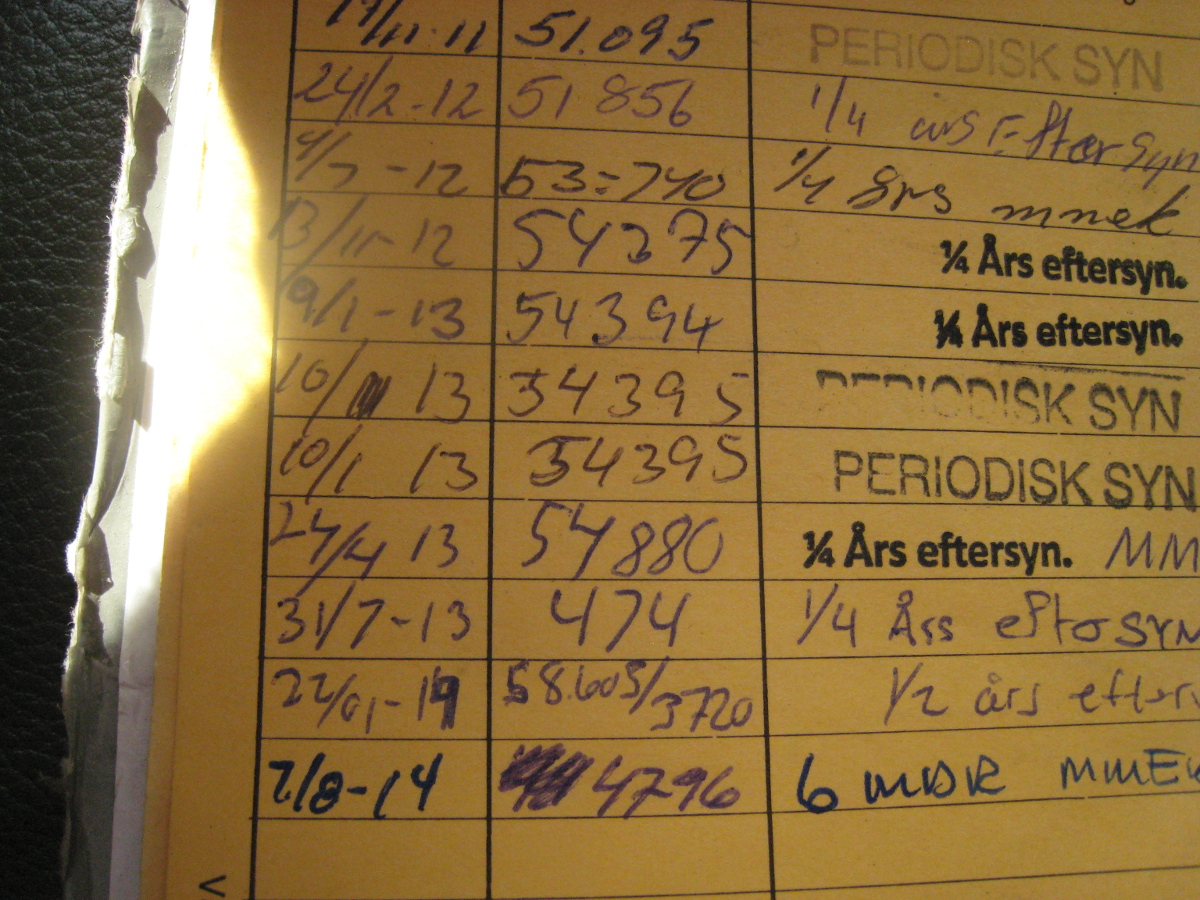 17/11-11 51.095 PERIODISK SYN
24/2-12 51856 1/4 års Eftersyn
4/7-12 53=740 1/4 års mnek
13/11-12 54375 1/4 Års eftersyn.
9/1-13 54394 1/4 Års eftersyn.
10/ 13 54395 PERIODISK SYN
10/1 13 54395 PERIODISK SYN
24/4 13 54880 1/4 Års eftersyn. MM
31/7-13 474 1/4 Års eftoSYN
22/01-14 58.605/3720 1/2 års efters
7/8-14 4796 6 MDR MMEK
<